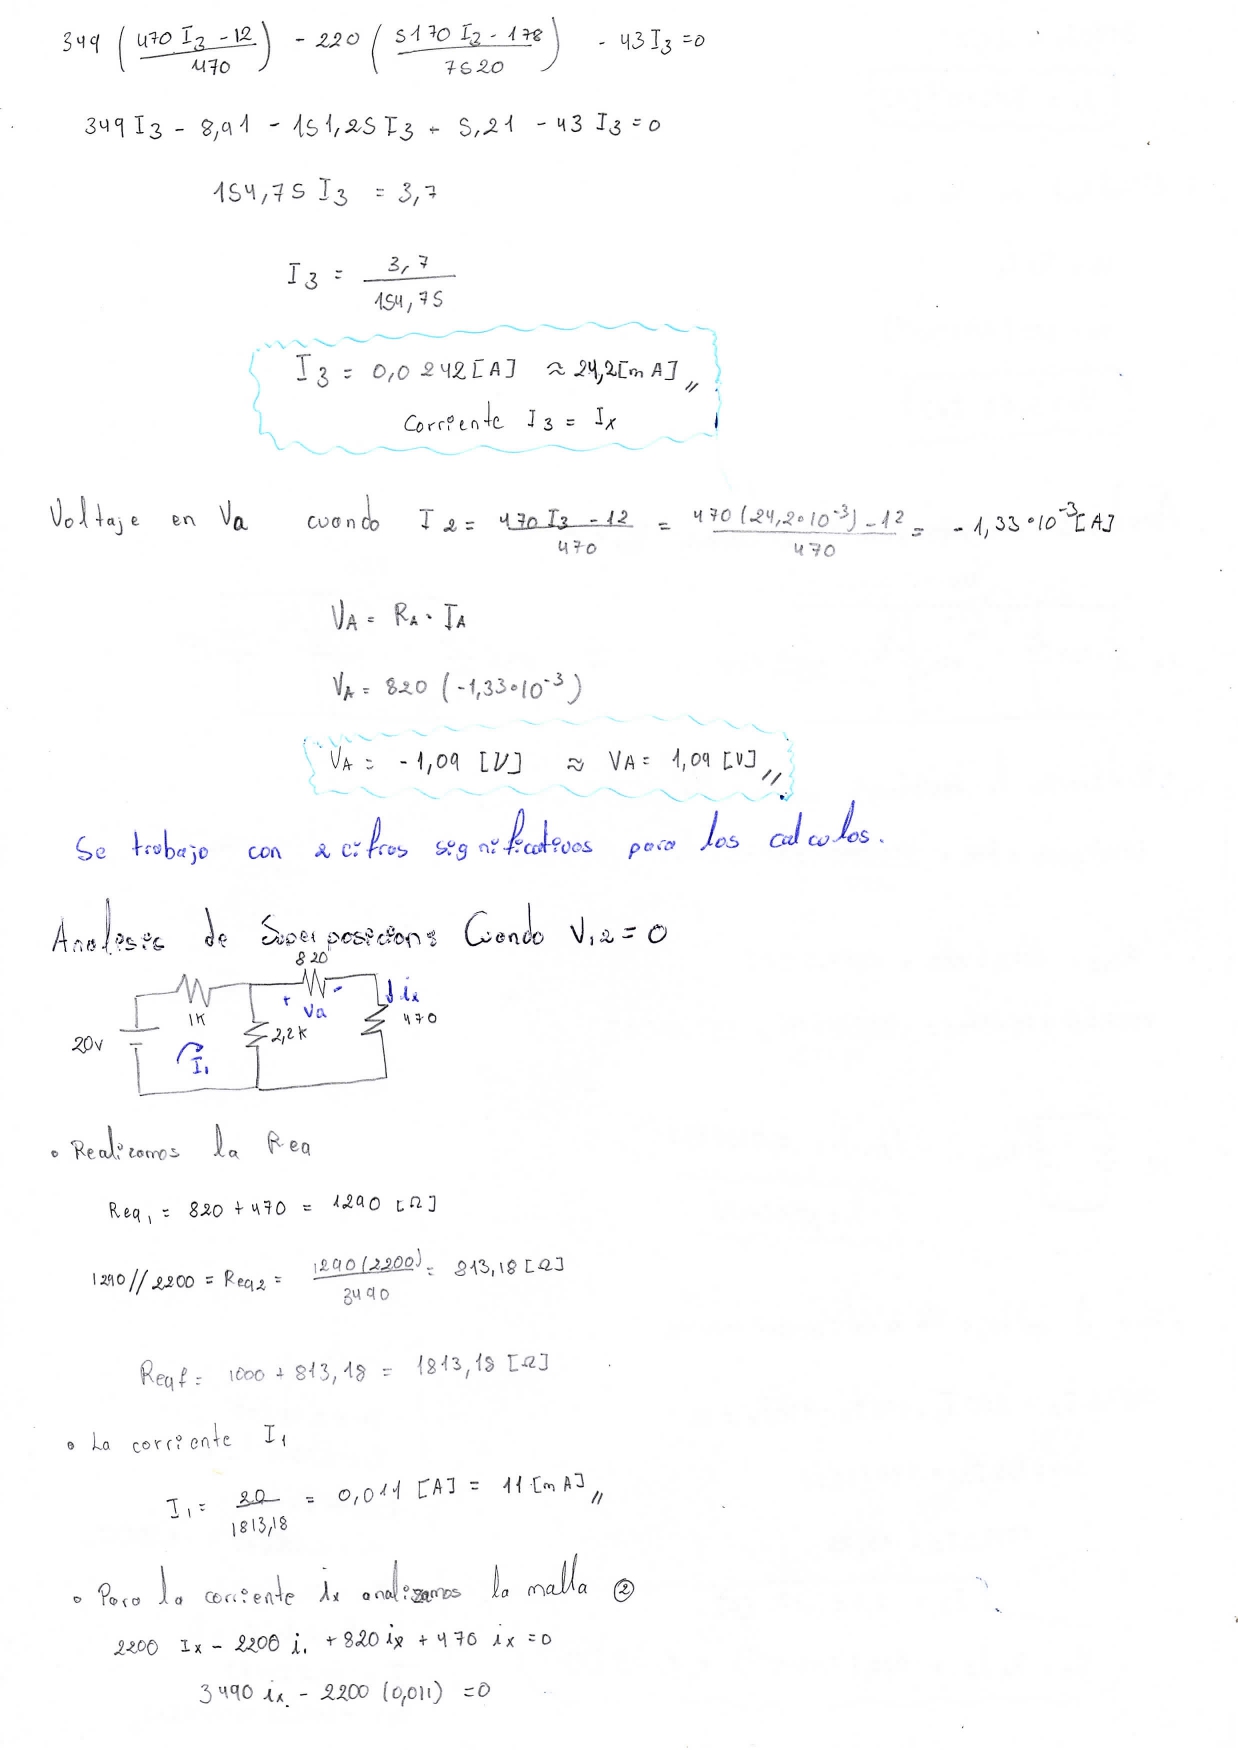 349 ( (470 I3 - 12) / 470 ) - 220 ( (5170 I3 - 178) / 7520 ) - 43 I3 = 0
349 I3 - 8,91 - 151,25 I3 + 5,21 - 43 I3 = 0
154,75 I3 = 3,7
I3 = 3,7 / 154,75
I3 = 0,0242 [A] ≈ 24,2 [mA] //
Corriente I3 = Ix
Voltaje en Va cuando I2 = (470 I3 - 12) / 470 = (470 (24,2•10^-3) - 12) / 470 = - 1,33•10^-3 [A]
VA = RA · IA
VA = 820 (-1,33•10^-3)
VA = - 1,09 [V] ≈ VA = 1,09 [V] //
Se trabajo con 2 cifras significativas para los calculos.
Analisis de Superposicion: Cuando V12 = 0
820
+ Va -
ix
1K
2,2K
470
20v
I1
• Realizamos la Req
Req1 = 820 + 470 = 1290 [Ω]
1290 // 2200 = Req2 = 1290 (2200) / 3490 = 813,18 [Ω]
Reqf = 1000 + 813,18 = 1813,18 [Ω]
• La corriente I1
I1 = 20 / 1813,18 = 0,011 [A] = 11 [mA] //
• Para la corriente ix analizamos la malla ②
2200 Ix - 2200 i1 + 820 ix + 470 ix = 0
3490 ix - 2200 (0,011) = 0